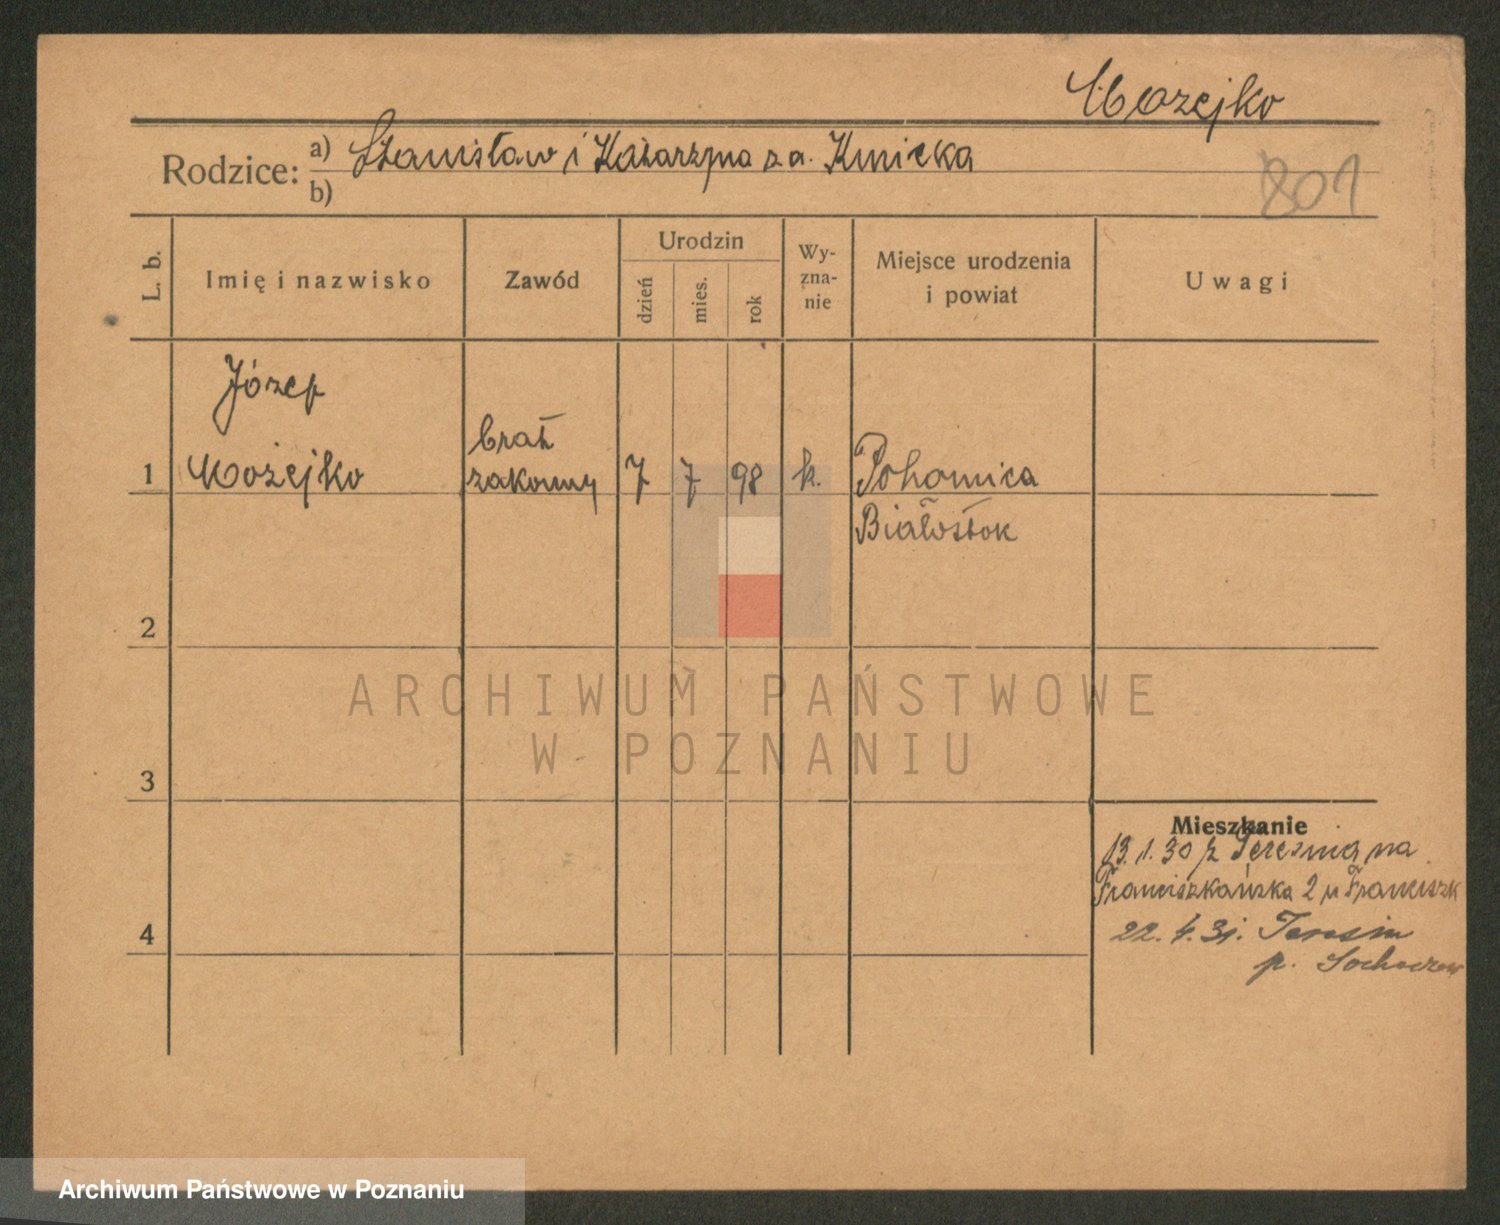 Mozejko
Rodzice: a) Stanisław i Katarzyna z d. Kmicka
b)
801
L. b.
Imię i nazwisko
Zawód
Urodzin
dzień
mies.
rok
Wy-
zna-
nie
Miejsce urodzenia
i powiat
Uwagi
Józef
brat
1 Możejko zakonny 7 7 98 k.
Białostok
2
3
4
ARCHIWUM PAŃSTWOWE
W POZNANIU
Mieszkanie
13.1.30 z Teresina na
Franciszkańska 2 u Franciszk
22. 31. Teresin
p. Sochaczew
Archiwum Państwowe w Poznaniu